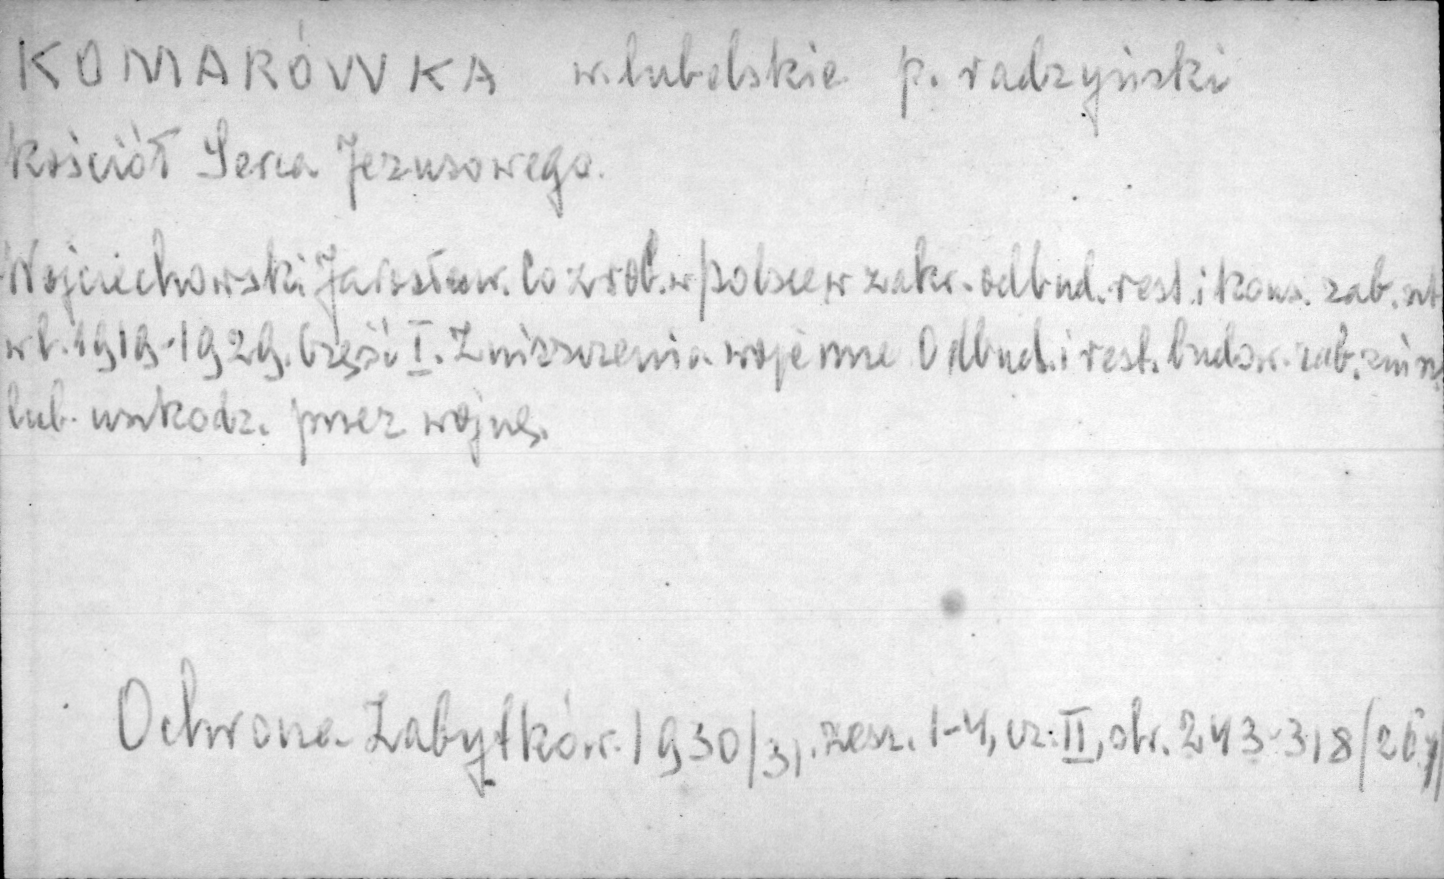 KOMARÓWKA w. lubelskie p. radzyński
Kościół Serca Jezusowego.
Wojciechowski Jarosław. Co zrob. w Polsce w zakr. odbud. rest. i kons. zab. szt.
w l. 1919-1929. Część I. Zniszczenia wojenne. Odbud. i rest. budow. zab. zniszcz.
lub uszkodz. przez wojnę.
Ochrona Zabytków. 1930/31. zesz. 1-4, cz. II, str. 243-318